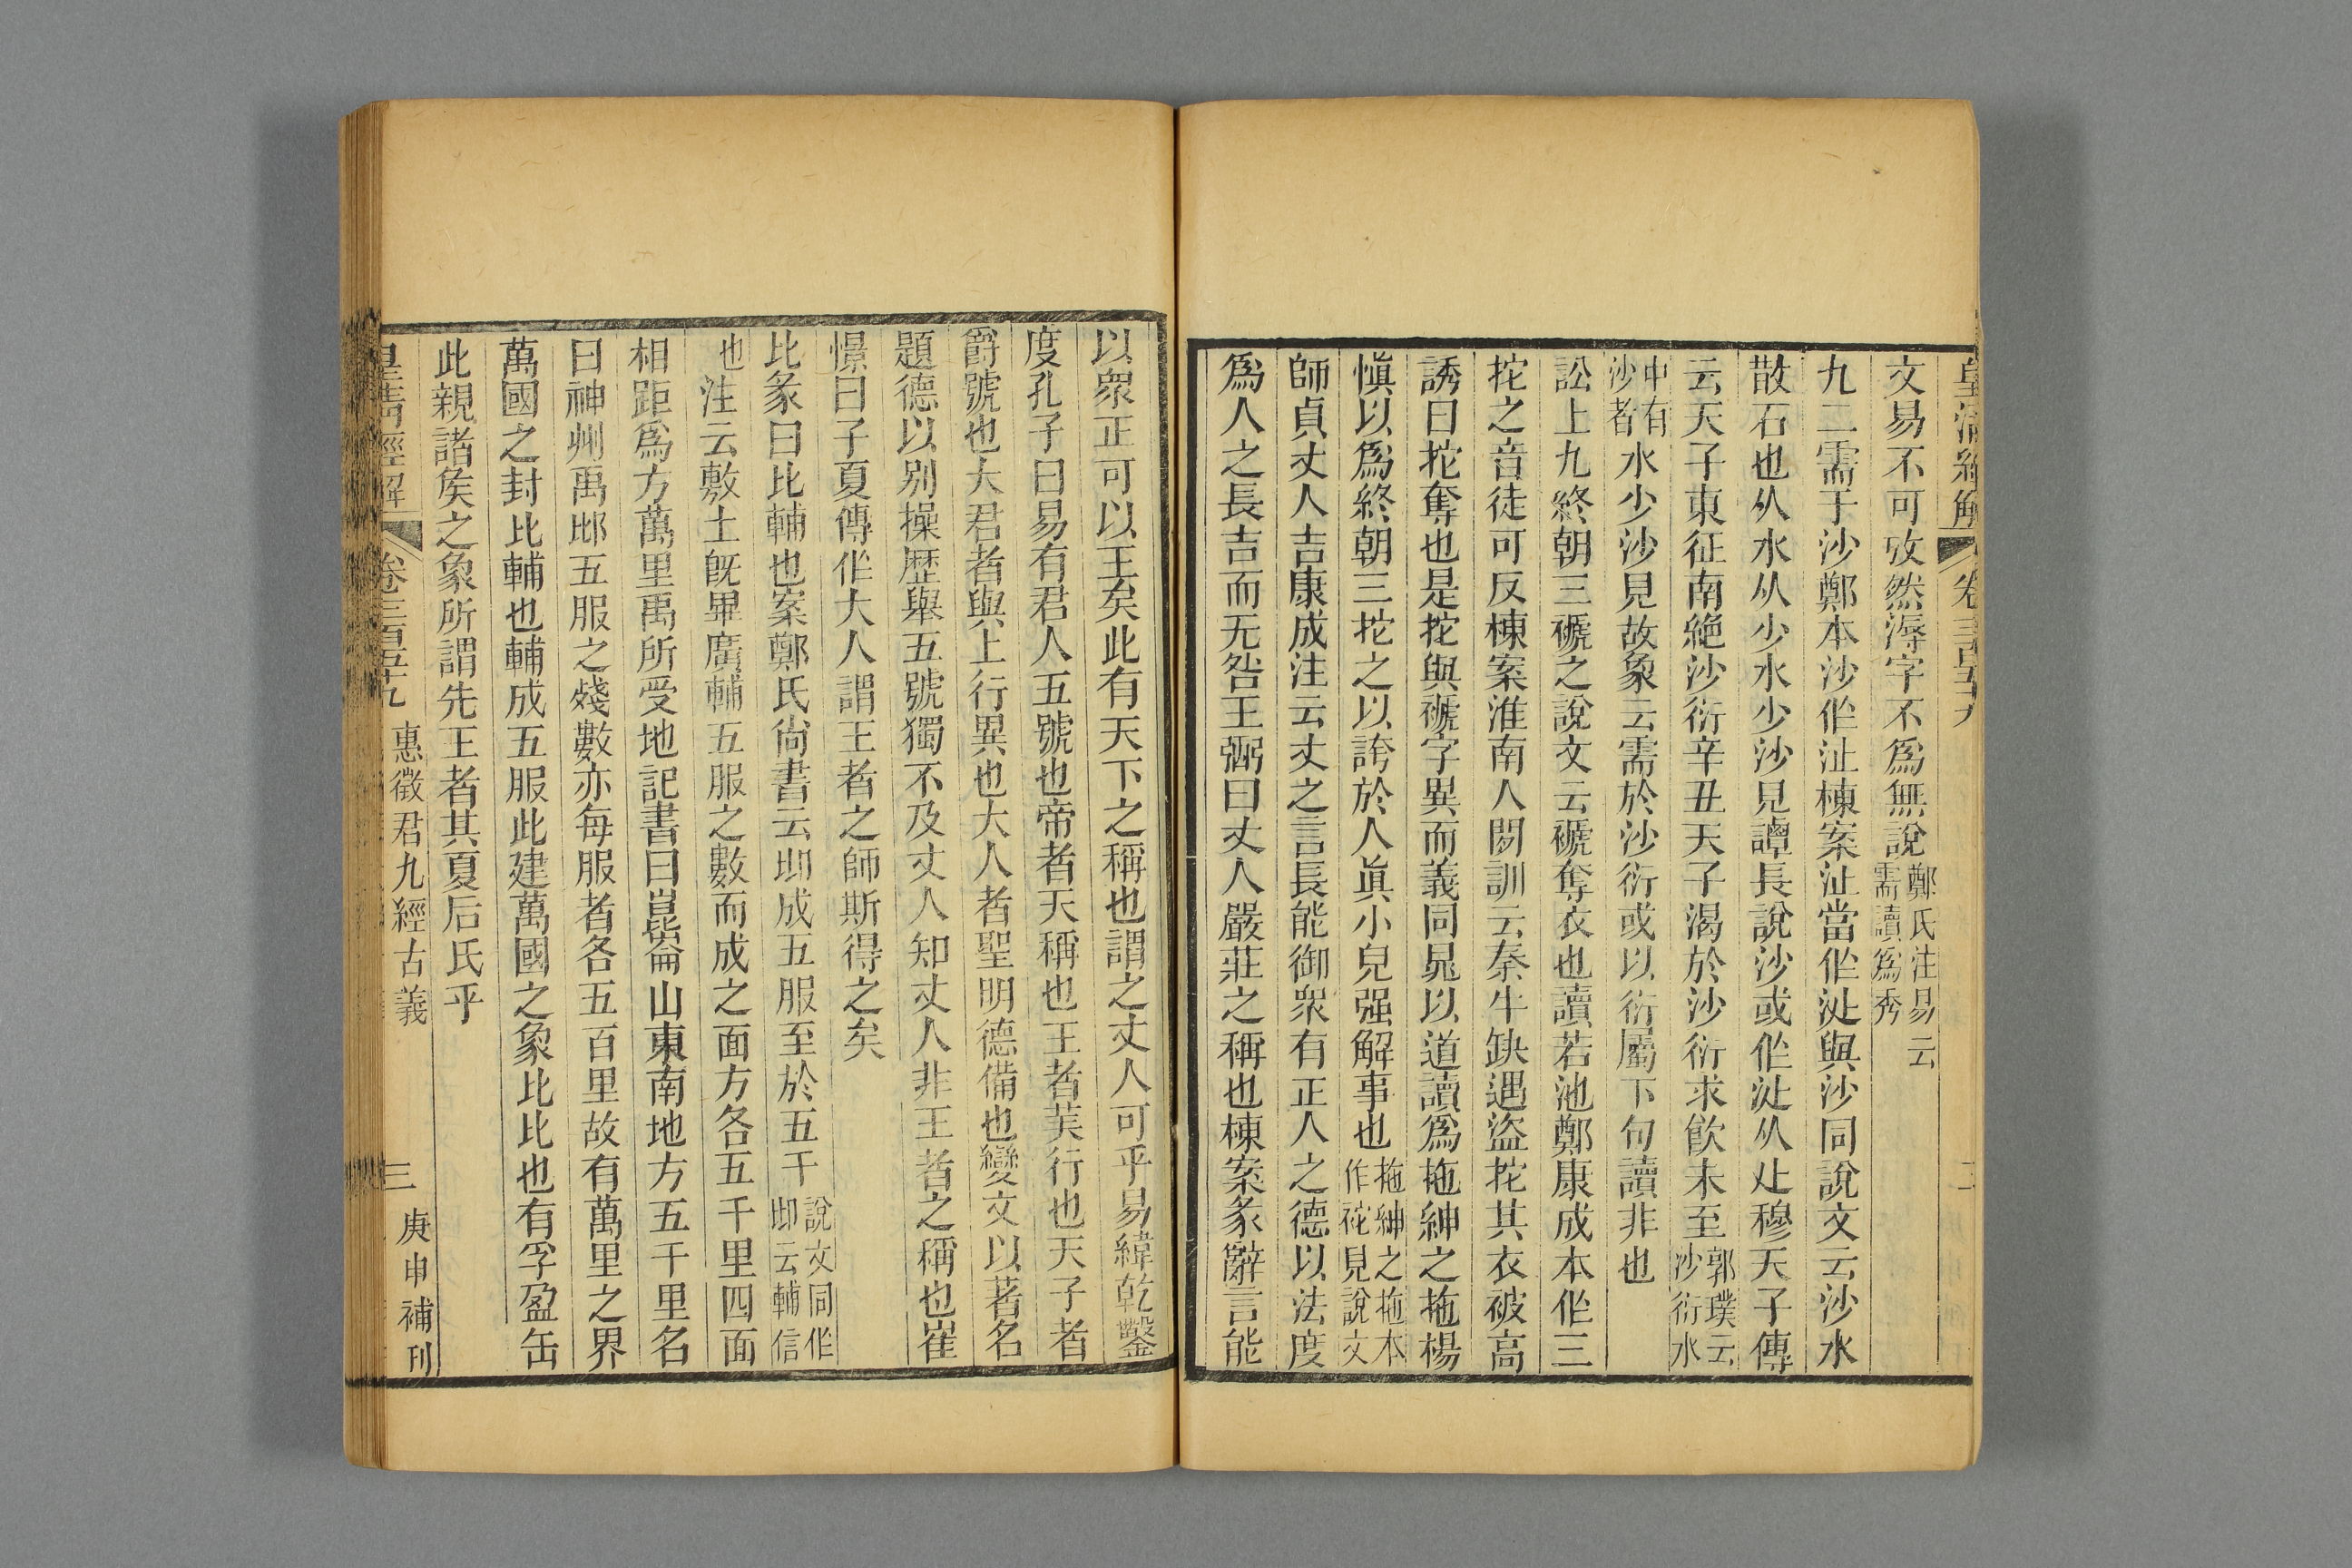 皇清經解 卷三百五十九 二
文易不可攷然溽字不爲無說鄭氏注易云需讀爲秀
九二需于沙鄭本沙作沚棟案沚當作沙與沙同說文云沙水
散石也从水从少水少沙見譚長說沙或作沙从尐穆天子傳
云天子東征南絶沙衍辛丑天子渴於沙衍求飮未至郭璞云沙衍水
中有沙者水少沙見故象云需於沙衍或以衍屬下句讀非也
訟上九終朝三褫之說文云褫奪衣也讀若池鄭康成本作三
拕之音徒可反棟案淮南人閒訓云秦牛缺遇盜拕其衣被高
誘曰拕奪也是拕與褫字異而義同晁以道讀爲拖紳之拖楊
愼以爲終朝三拕之以誇於人眞小兒强解事也拖紳之拖本作袉見說文
師貞丈人吉康成注云丈之言長能御衆有正人之德以法度
爲人之長吉而无咎王弼曰丈人嚴莊之稱也棟案彖辭言能
以衆正可以王矣此有天下之稱也謂之丈人可乎易緯乾鑿
度孔子曰易有君人五號也帝者天稱也王者美行也天子者
爵號也大君者與上行異也大人者聖明德備也變文以著名
題德以别操歷舉五號獨不及丈人知丈人非王者之稱也崔
憬曰子夏傳作大人謂王者之師斯得之矣
比彖曰比輔也案鄭氏尙書云邶成五服至於五千說文同作邶云輔信
也注云敷土旣畢廣輔五服之數而成之面方各五千里四面
相距爲方萬里禹所受地記書曰崑崙山東南地方五千里名
曰神州禹邶五服之殘數亦每服者各五百里故有萬里之界
萬國之封比輔也輔成五服此建萬國之象比比也有孚盈缶
此親諸矦之象所謂先王者其夏后氏乎
皇淸經解 卷三百五十九 惠徵君九經古義 三 庚申補刊